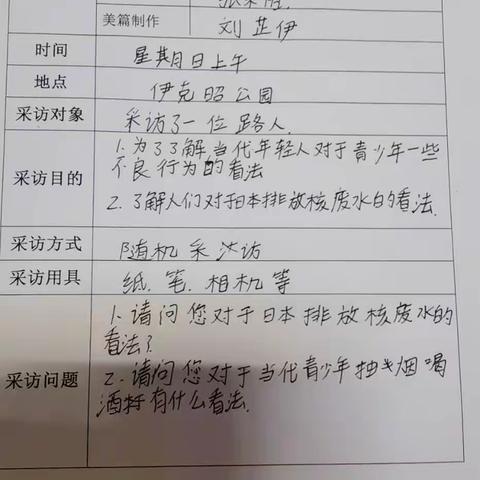 美篇制作 刘芷伊
时间 星期日上午
地点 伊克昭公园
采访对象 采访了一位路人.
采访目的
1.为了了解当代年轻人对于青少年一些
不良行为的看法
2.了解人们对于日本排放核废水的看法.
采访方式 随机采访
采访用具 纸.笔.相机等
采访问题
1.请问您对于日本排放核废水的
看法?
2.请问您对于当代青少年抽烟喝
酒有什么看法.